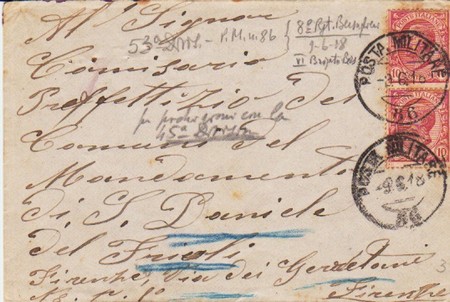 Al Signor
53ª Div. - P.M. n. 86
8º Rgt. Bersaglieri
9-6-18
VI Brigata Bers.
Comissario
Prefettizio del
Comune del
45ª Divis.
Mandamento
di S. Daniele
del Friuli
Firenze, Via dei
Firenze
POSTA MILITARE
9.6.18
86
POSTA MILITARE
9.6.18
86
10
10
3